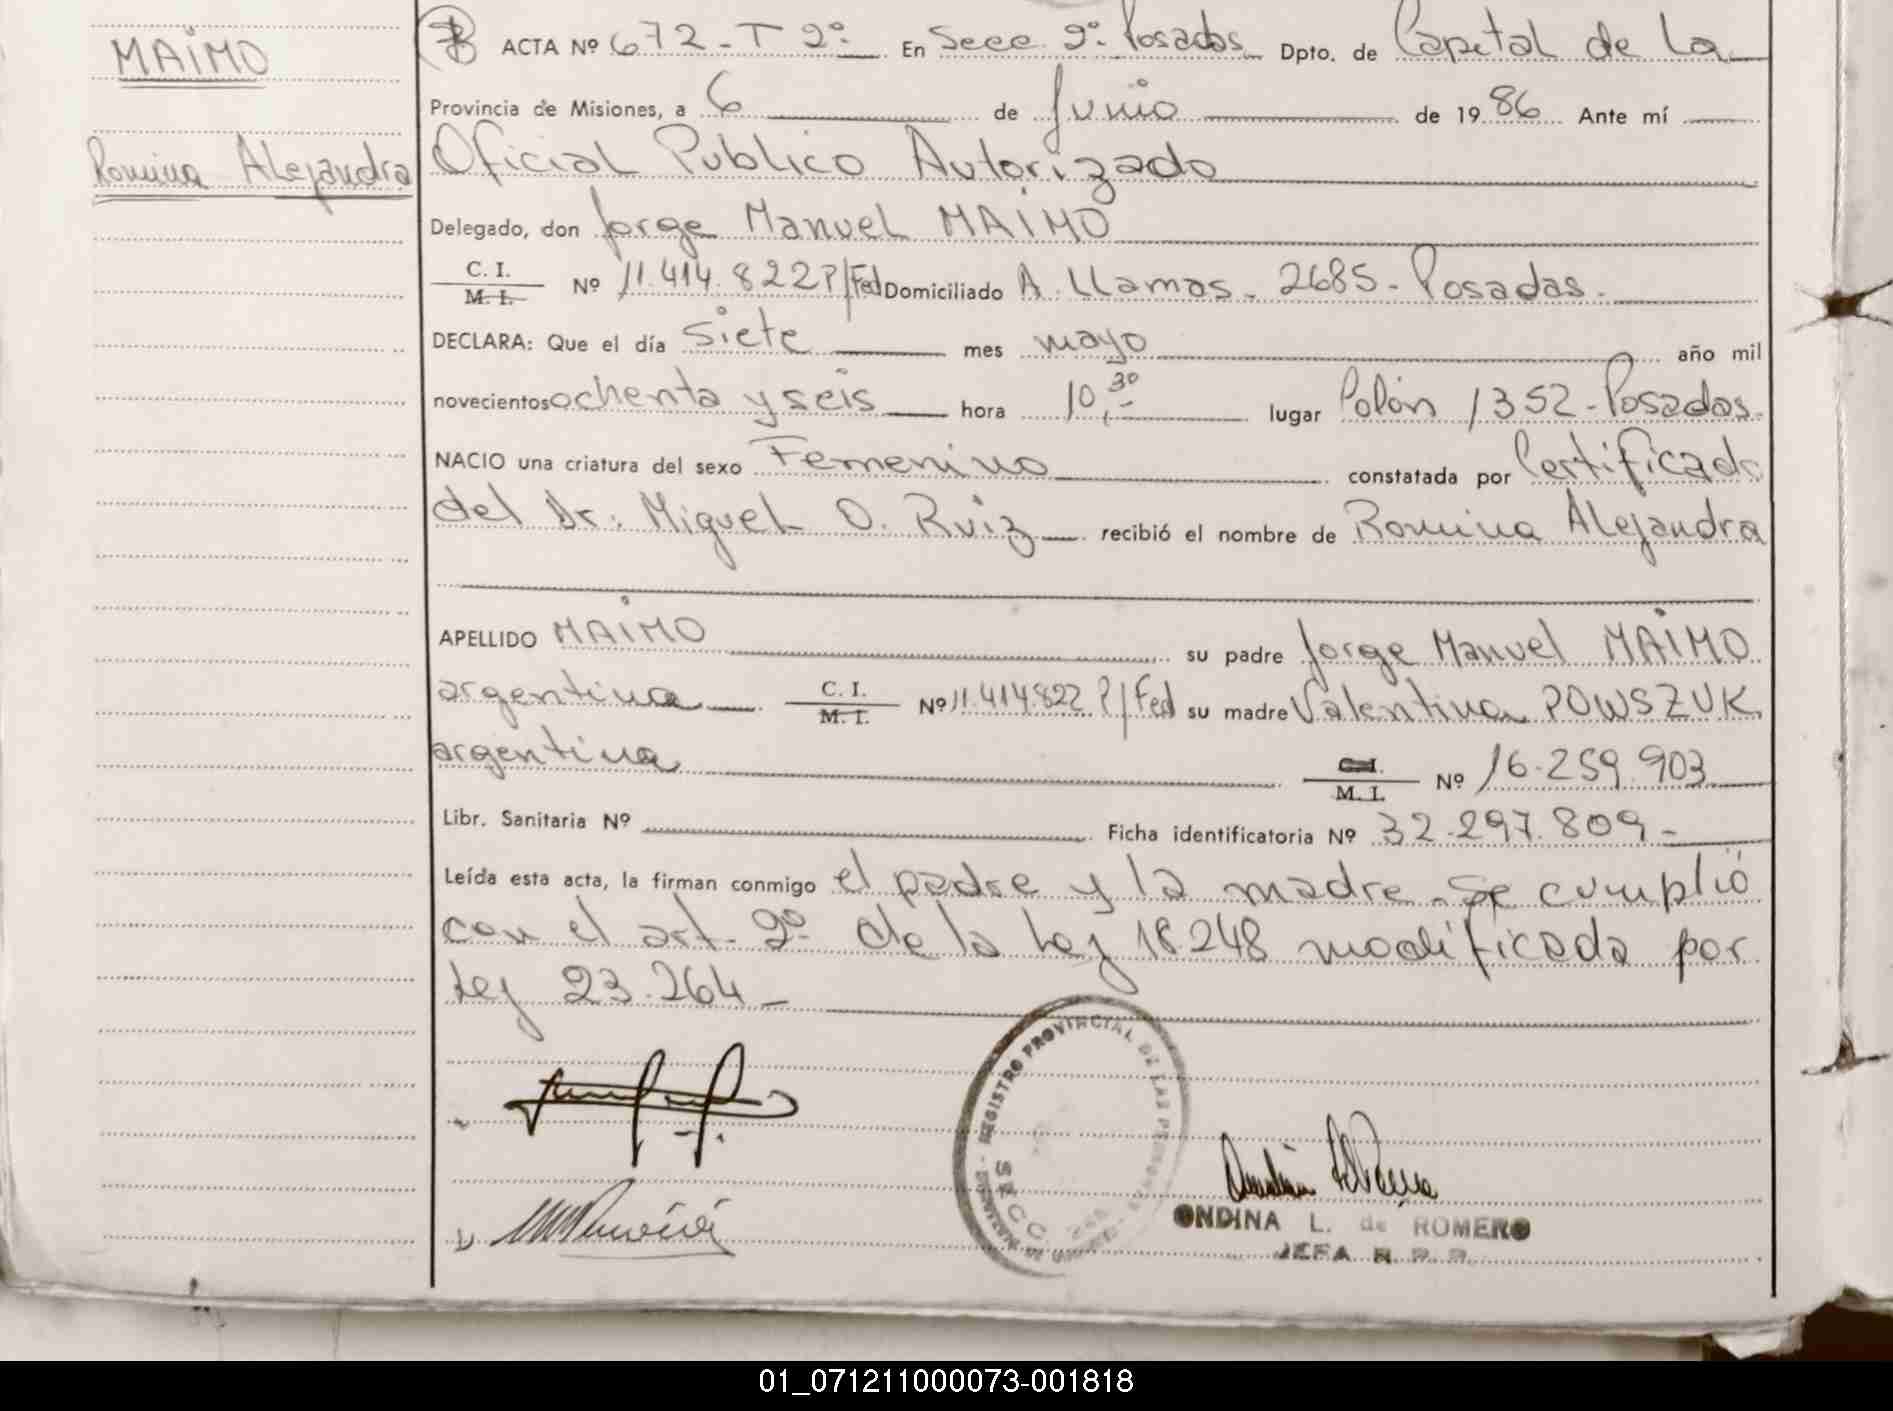 MAIMO
Romina Alejandra
ACTA Nº 672-T 2º. En Secc. 2º. Posadas Dpto. de Capital de La
Provincia de Misiones, a 6 de Junio de 1986 Ante mí
Oficial Publico Autorizado
Delegado, don Jorge Manuel MAIMO
C. I. / M. I. Nº 11.414.822 P/Fed Domiciliado A. Llamas. 2685 - Posadas.
DECLARA: Que el día siete mes mayo año mil
novecientos ochenta y seis hora 10,30 lugar Polón 1352 - Posadas.
NACIO una criatura del sexo Femenino constatada por Certificado
del Dr. Miguel O. Ruiz recibió el nombre de Romina Alejandra
APELLIDO MAIMO su padre Jorge Manuel MAIMO
argentina C. I. / M. I. Nº 11.414.822 P/Fed su madre Valentina POWSZUK
argentina C. I. / M. I. Nº 16.259.903
Libr. Sanitaria Nº Ficha identificatoria Nº 32.297.809 -
Leída esta acta, la firman conmigo el padre y la madre. Se cumplió
con el art. 2º de la Ley 18248 modificada por
Ley 23.264 -
REGISTRO PROVINCIAL DE LAS PERSONAS
SECC
ONDINA L. de ROMERO
JEFA R. P. P.
01_071211000073-001818